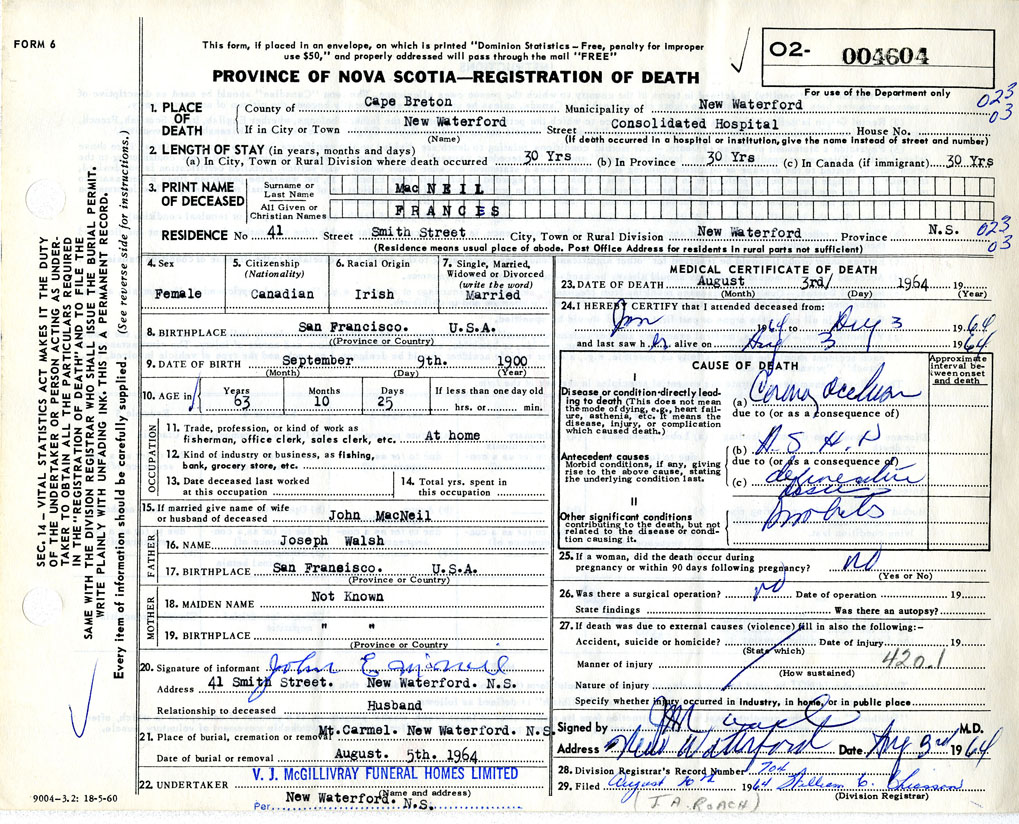 FORM 6
This form, if placed in an envelope, on which is printed "Dominion Statistics – Free, penalty for improper
use $50," and properly addressed will pass through the mail "FREE"
PROVINCE OF NOVA SCOTIA—REGISTRATION OF DEATH
O2- 004604
For use of the Department only
023
03
1. PLACE OF DEATH
County of Cape Breton Municipality of New Waterford
If in City or Town New Waterford Street Consolidated Hospital House No.
(Name) (If death occurred in a hospital or institution, give the name instead of street and number)
2. LENGTH OF STAY (in years, months and days)
(a) In City, Town or Rural Division where death occurred 30 Yrs (b) In Province 30 Yrs (c) In Canada (if immigrant) 30 Yrs
3. PRINT NAME OF DECEASED
Surname or Last Name MacNEIL
All Given or Christian Names FRANCES
RESIDENCE No 41 Street Smith Street City, Town or Rural Division New Waterford Province N.S.
023
03
(Residence means usual place of abode. Post Office Address for residents in rural parts not sufficient)
4. Sex Female
5. Citizenship (Nationality) Canadian
6. Racial Origin Irish
7. Single, Married, Widowed or Divorced (write the word) Married
8. BIRTHPLACE San Francisco. U.S.A.
((Province or Country)
9. DATE OF BIRTH September 9th. 1900
(Month) (Day) (Year)
10. AGE in Years 63 Months 10 Days 25 If less than one day old hrs. or min.
OCCUPATION
11. Trade, profession, or kind of work as
fisherman, office clerk, sales clerk, etc. At home
12. Kind of industry or business, as fishing,
bank, grocery store, etc.
13. Date deceased last worked
at this occupation
14. Total yrs. spent in
this occupation
15. If married give name of wife
or husband of deceased John MacNeil
FATHER
16. NAME Joseph Walsh
17. BIRTHPLACE San Fransisco. U.S.A.
(Province or Country)
MOTHER
18. MAIDEN NAME Not Known
19. BIRTHPLACE " "
(Province or Country)
20. Signature of informant John E.
Address 41 Smith Street. New Waterford. N.S.
Relationship to deceased Husband
21. Place of burial, cremation or removal Mt.Carmel. New Waterford. N.S.
Date of burial or removal August. 5th. 1964
22. UNDERTAKER V. J. McGILLIVRAY FUNERAL HOMES LIMITED
(Name and address)
New Waterford. N.S.
Per
9004-3.2: 18-5-60
MEDICAL CERTIFICATE OF DEATH
23. DATE OF DEATH August 3rd/ 1964 19
(Month) (Day) (Year)
24. I HEREBY CERTIFY that I attended deceased from:
Jan 1964 to Aug 3 1964
and last saw her alive on Aug 3 1964
CAUSE OF DEATH
Approximate interval between onset and death
I
Disease or condition directly leading to death (This does not mean the mode of dying, e.g., heart failure, asthenia, etc. It means the disease, injury, or complication which caused death.)
(a)
due to (or as a consequence of)
Antecedent causes
Morbid conditions, if any, giving rise to the above cause, stating the underlying condition last.
(b) A.S.H.D
due to (or as a consequence of)
(c)
II
Other significant conditions
contributing to the death, but not related to the disease or condition causing it.
25. If a woman, did the death occur during
pregnancy or within 90 days following pregnancy? no
(Yes or No)
26. Was there a surgical operation? no Date of operation 19
State findings Was there an autopsy?
27. If death was due to external causes (violence) fill in also the following:-
Accident, suicide or homicide? Date of injury 19
(State which)
420.1
Manner of injury
(How sustained)
Nature of injury
Specify whether injury occurred in industry, in home, or in public place
Signed by M.D.
Address New Waterford Date Aug 3rd 1964
28. Division Registrar's Record Number 704
29. Filed August 10th 1964 William C. Chiasson
(Division Registrar)
(J.A. ROACH)
SEC. 14 – VITAL STATISTICS ACT MAKES IT THE DUTY
OF THE UNDERTAKER OR PERSON ACTING AS UNDER-
TAKER TO OBTAIN ALL THE PARTICULARS REQUIRED
IN THE "REGISTRATION OF DEATH" AND TO FILE THE
SAME WITH THE DIVISION REGISTRAR WHO SHALL ISSUE THE BURIAL PERMIT.
WRITE PLAINLY WITH UNFADING INK. THIS IS A PERMANENT RECORD.
Every item of information should be carefully supplied. (See reverse side for instructions.)